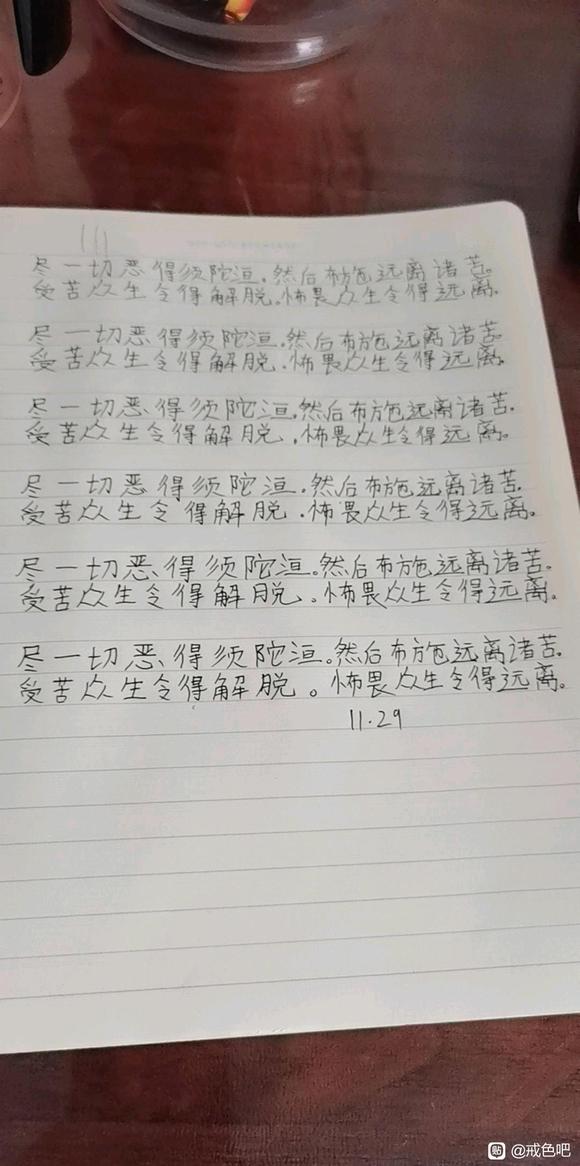 尽一切恶得须陀洹.然后布施远离诸苦.
受苦众生令得解脱.怖畏众生令得远离.
尽一切恶得须陀洹.然后布施远离诸苦.
受苦众生令得解脱.怖畏众生令得远离.
尽一切恶得须陀洹.然后布施远离诸苦.
受苦众生令得解脱.怖畏众生令得远离.
尽一切恶得须陀洹.然后布施远离诸苦.
受苦众生令得解脱.怖畏众生令得远离.
尽一切恶得须陀洹。然后布施远离诸苦.
受苦众生令得解脱。怖畏众生令得远离。
尽一切恶得须陀洹。然后布施远离诸苦.
受苦众生令得解脱。怖畏众生令得远离。
11.29
贴 @戒色吧